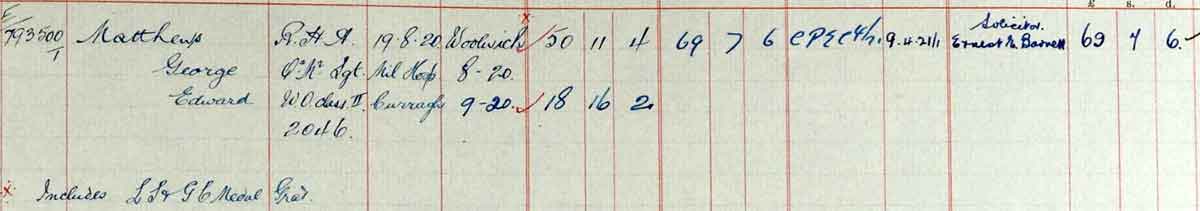 £ s. d.
E/793500/1 Matthews R.H.A. 19.8.20 Woolwich 50 11 4 69 7 6 9.4.21 Solicitor. Ernest Barnett 69 7 6.
George Qr Mr Sgt. Mil Hosp 8-20.
Edward WO class II Curragh 9-20. 18 16 2
2046.
x Includes L S & G C Medal Grat.